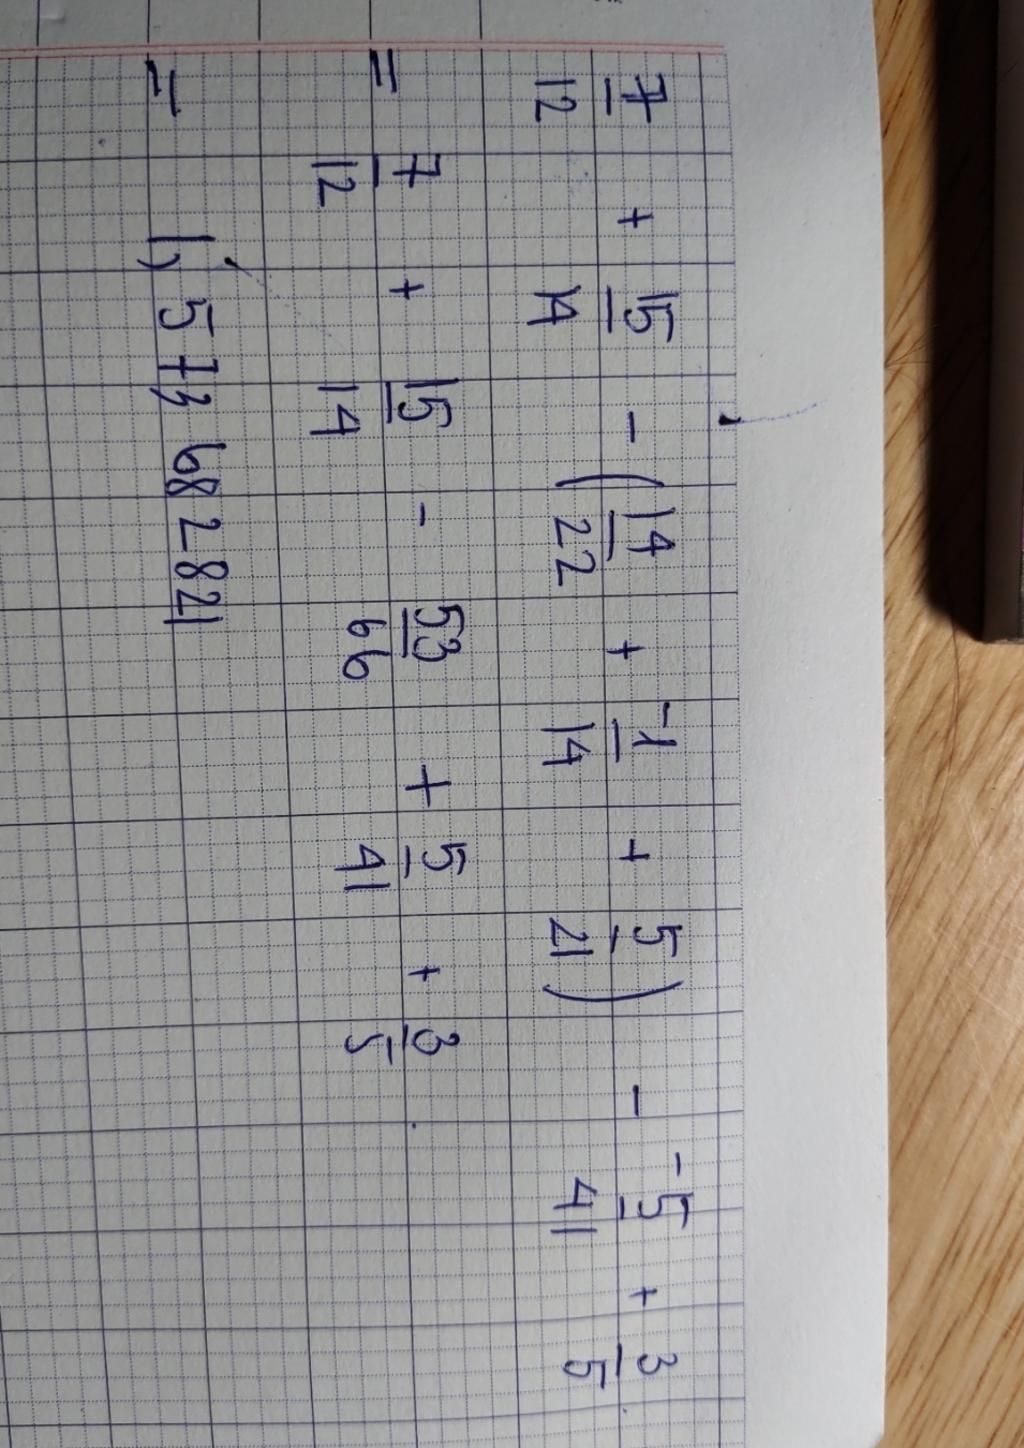 7/12 + 15/14 - (14/22 + -1/14 + 5/21) - -5/41 + 3/5
= 7/12 + 15/14 - 53/66 + 5/41 + 3/5
= 1,573 682 821